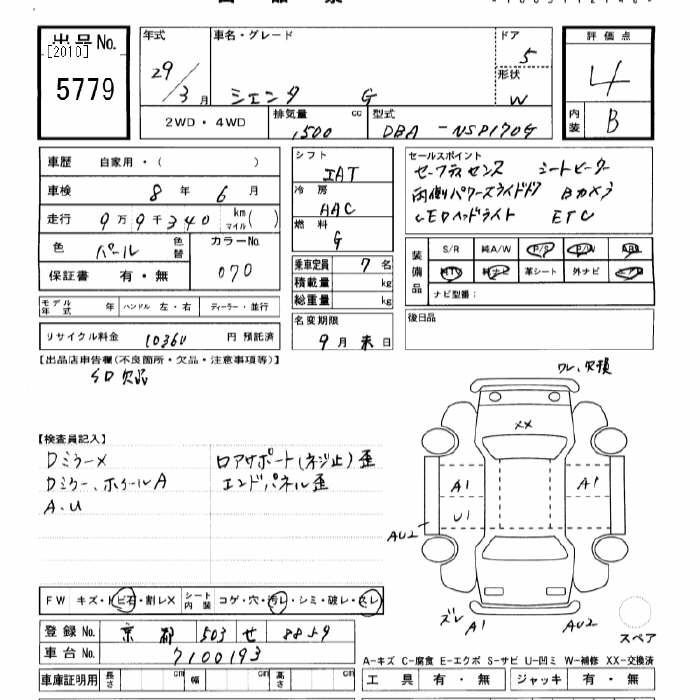 出品No.
[2010]
5779
年式 車名・グレード ドア 評価点
29/3月 シエンタ G 5 4
形状 W
2WD・4WD 排気量 1500 cc 型式 DBA-NSP170G 内装 B
車歴 自家用・( )
車検 8年 6月
走行 9万9千340 km マイル( )
色 パール 色替 カラーNo. 070
保証書 有・無
モデル年式 年 ハンドル 左・右 ディーラー・並行
リサイクル料金 10360 円 預託済
シフト IAT
冷房 AAC
燃料 G
乗車定員 7名
積載量 kg
総重量 kg
名変期限 9月末日
セールスポイント
セーフティセンス シートヒーター
両側パワースライドドア Bカメラ
LEDヘッドライト ETC
装備品 S/R 純A/W P/S P/W ABS
純ナビ 革シート 外ナビ
ナビ型番:
後日品
【出品店申告欄(不良箇所・欠品・注意事項等)】
SD欠品
ワレ、欠損
XX
A1 A1
U1
AU2
ズレ A1 AU2
スペア
【検査員記入】
Dミラー× ロアサポート(ネジ止)歪
Dミラー、ホイールA エンドパネル歪
A.U
FW キズ・トビ石・割レX シート内装 コゲ・穴・汚レ・シミ・破レ・スレ
登録No. 京都 503 せ 8859
車台No. 7100193
A-キズ C-腐食 E-エクボ S-サビ U-凹ミ W-補修 XX-交換済
車庫証明用 長さ cm 幅 cm 高さ cm
工具 有・無 ジャッキ 有・無